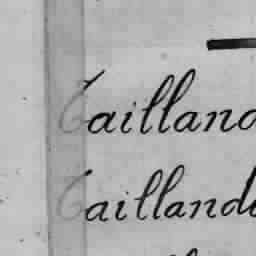 Ailland
Taillande